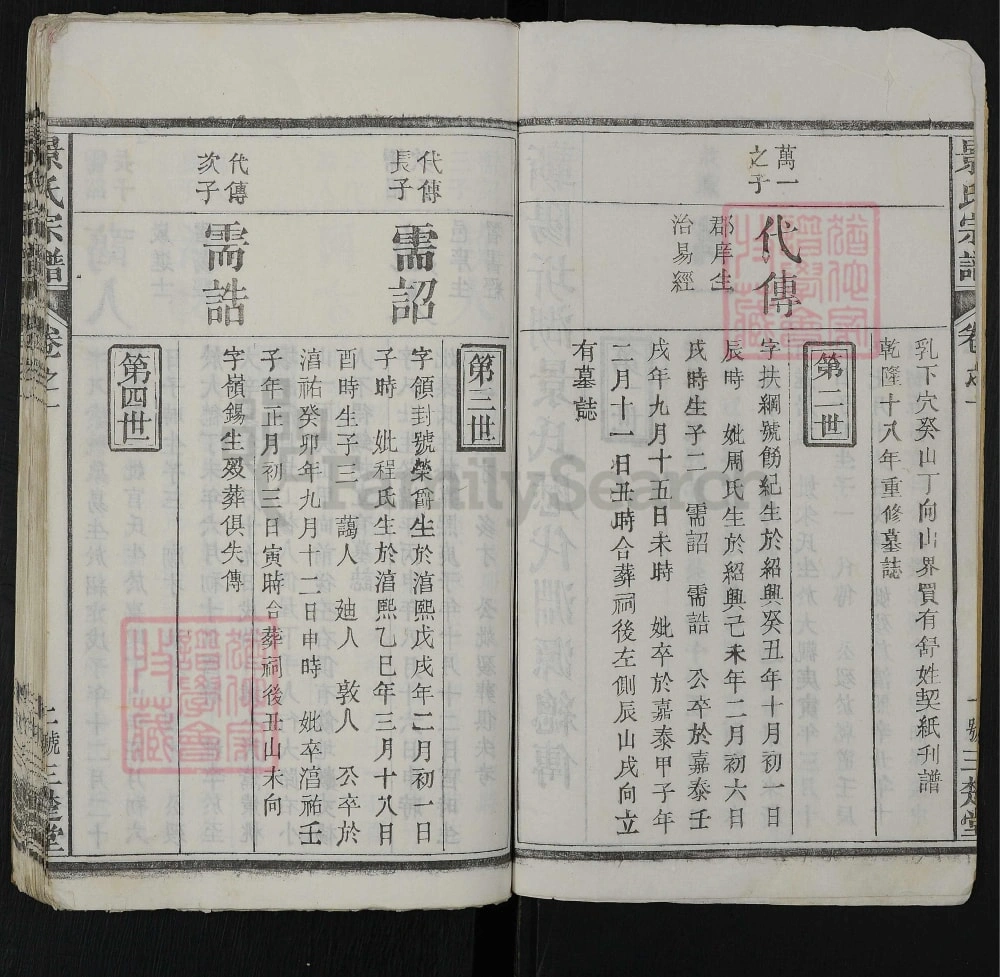 景氏宗譜 卷之一 一號 三楚堂
乳下穴癸山丁向山界買有舒姓契紙刊譜
乾隆十八年重修墓誌
第二世
萬一
之子
代傳
郡庠生
治易經
字扶綱號飭紀生於紹興癸丑年十月初一日
辰時 妣周氏生於紹興己未年二月初六日
戌時生子二 需詔 需誥 公卒於嘉泰壬
戌年九月十五日未時 妣卒於嘉泰甲子年
二月十一日丑時合葬祠後左側辰山戌向立
有墓誌
第三世
代傳
長子
需詔
字領封號榮爵生於湻熙戊戌年二月初一日
子時 妣程氏生於湻熙乙巳年三月十八日
酉時生子三 藹人 廸人 敦人 公卒於
湻祐癸卯年九月十二日申時 妣卒湻祐壬
子年正月初三日寅時合葬祠後丑山未向
代傳
次子
需誥
字嶺錫生歿葬俱失傳
第四世
景氏宗譜 卷之一 二號 三楚堂
FamilySearch